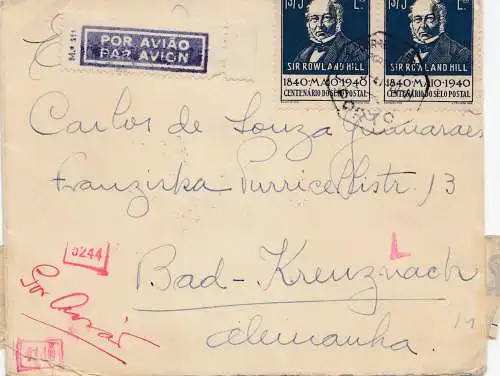 Mod. 211
POR AVIÃO
PAR AVION
1$75
SIR ROWLAND HILL
1840·MAIO·1940
CENTENÁRIO DO SELO POSTAL
SIR ROWLAND HILL
1840·MAIO·1940
CENTENÁRIO DO SELO POSTAL
PORTO
Carlos de Souza Guimarães
Franziska Puricellistr. 13
5244
L
Bad-Kreuznach
Por Avião
Alemanha